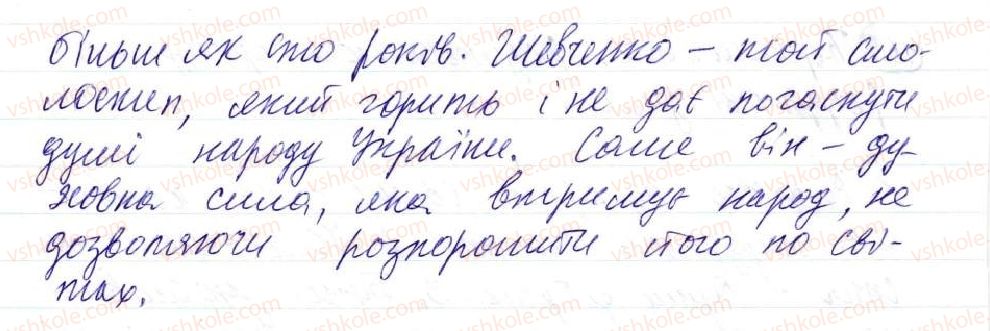 більш як сто років. Шевченко – той смо-
лоскип, який горить і не дає погаснути
душі народу України. Саме він – ду-
ховна сила, яка втримує народ, не
дозволяючи розпорошити його по сві-
тах.